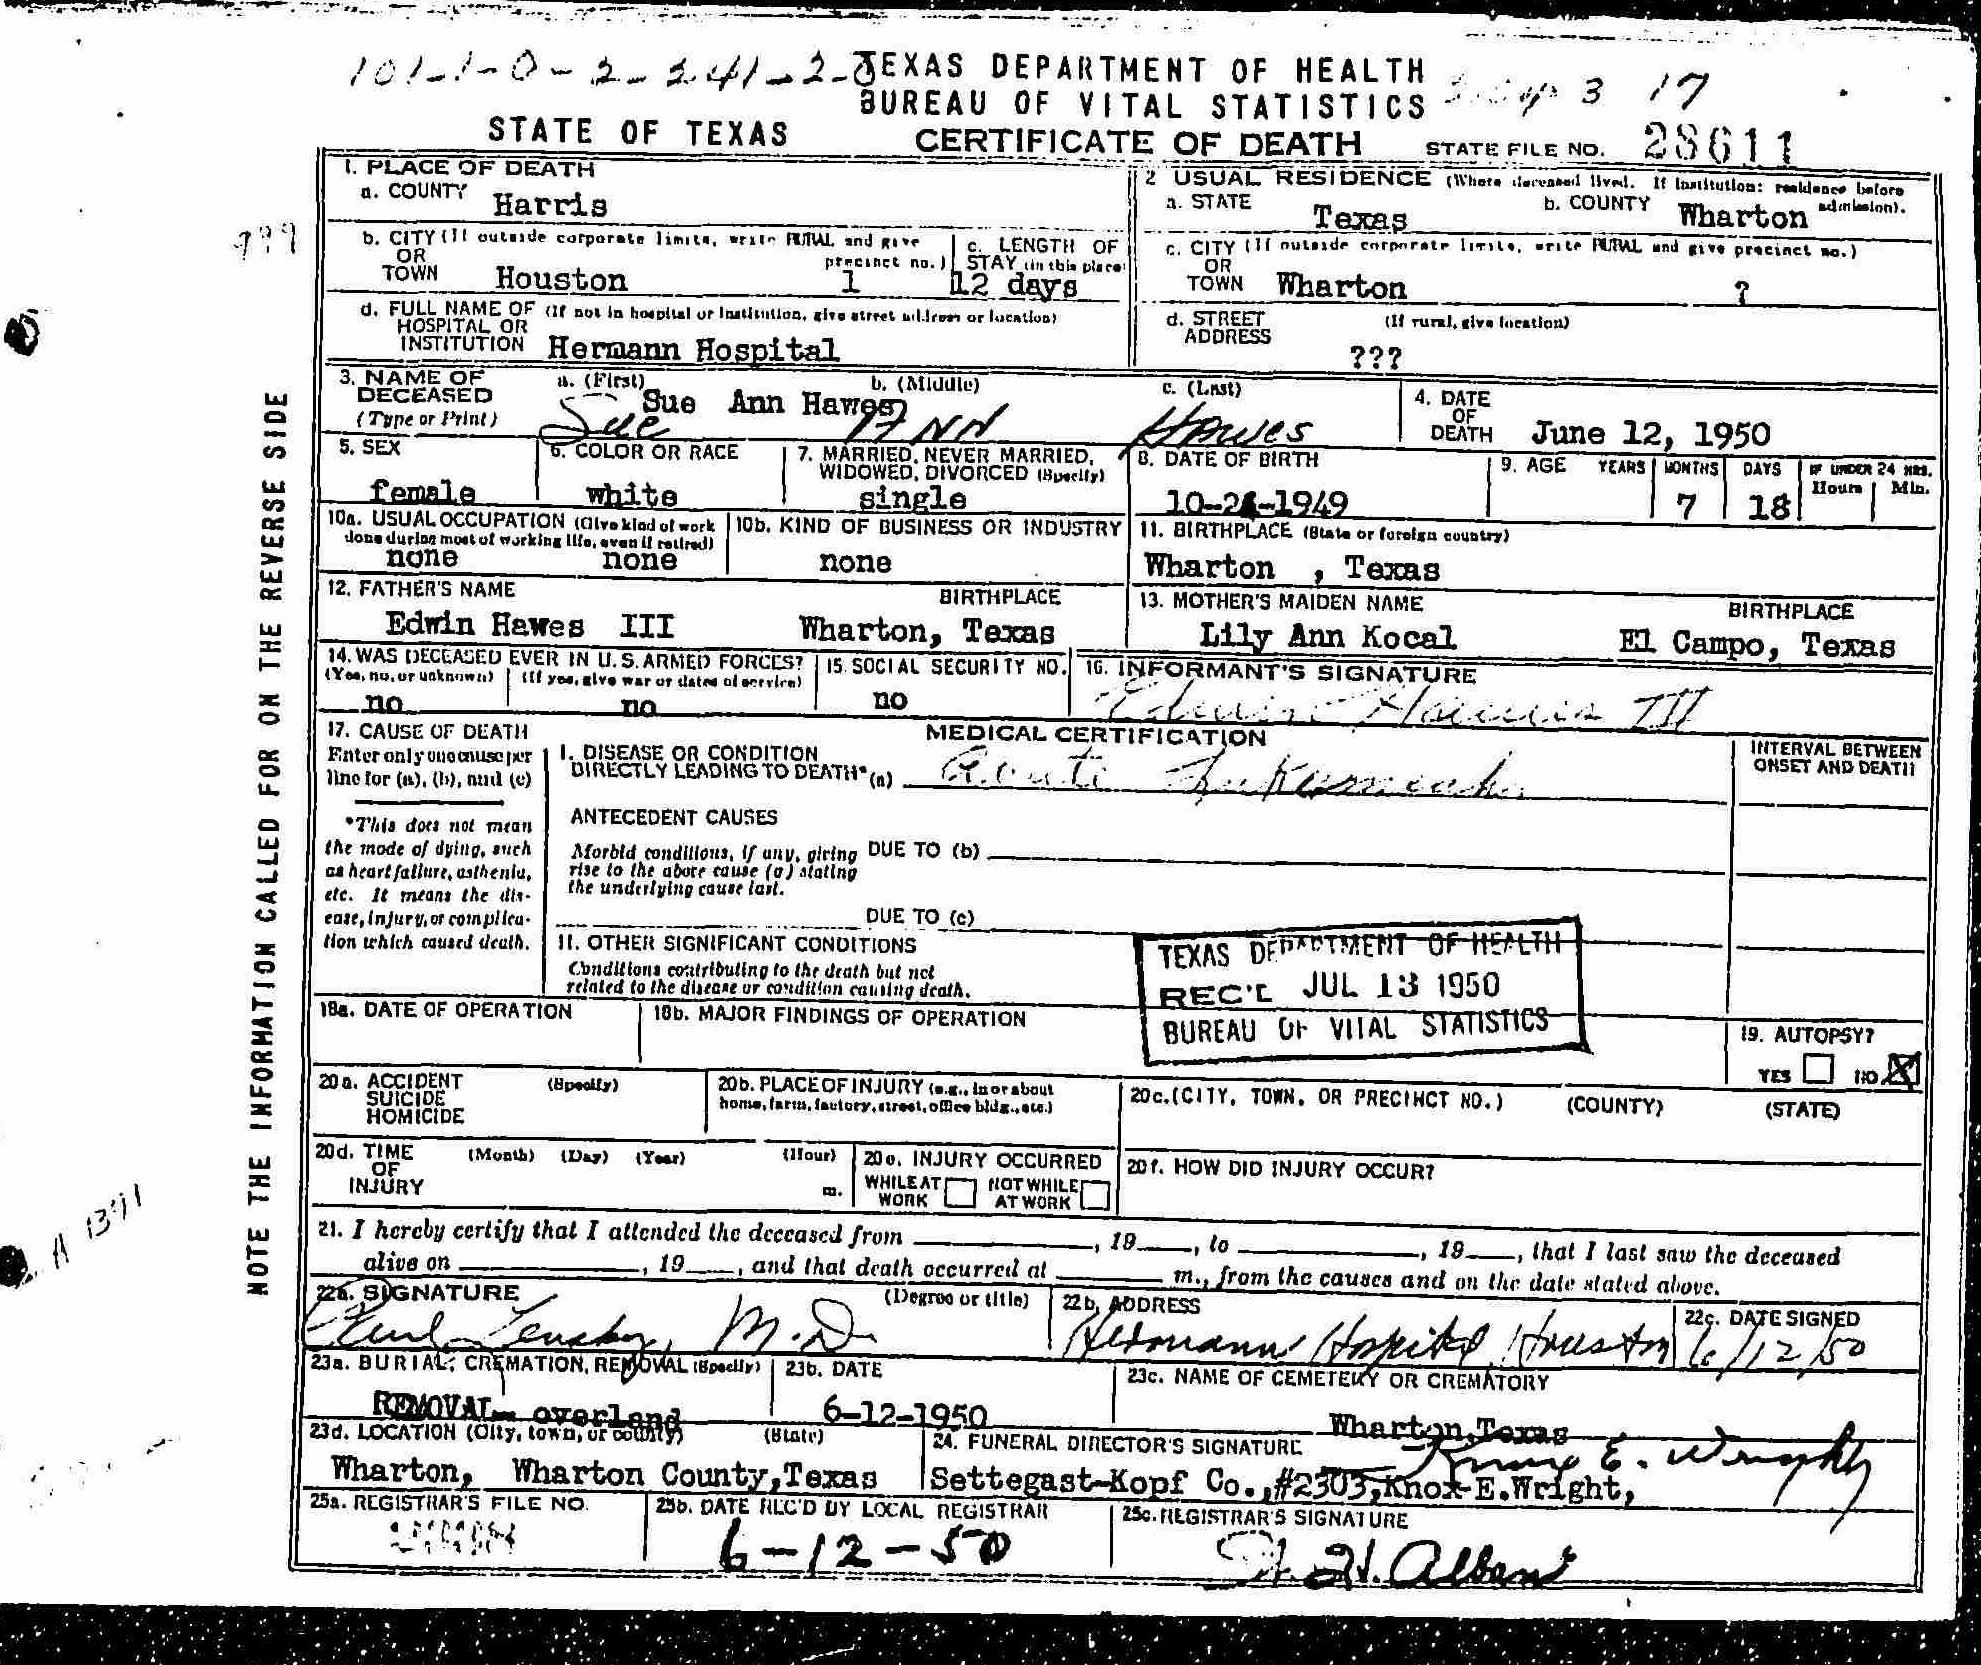 101-1-0-2-241-2-0
TEXAS DEPARTMENT OF HEALTH
BUREAU OF VITAL STATISTICS
3 17
STATE OF TEXAS
CERTIFICATE OF DEATH
STATE FILE NO. 28611
NOTE THE INFORMATION CALLED FOR ON THE REVERSE SIDE
1. PLACE OF DEATH
a. COUNTY Harris
b. CITY (If outside corporate limits, write RURAL and give precinct no.)
OR
TOWN Houston 1
c. LENGTH OF
STAY (in this place)
12 days
d. FULL NAME OF (If not in hospital or institution, give street address or location)
HOSPITAL OR
INSTITUTION Hermann Hospital
2 USUAL RESIDENCE (Where deceased lived. If institution: residence before admission).
a. STATE Texas
b. COUNTY Wharton
c. CITY (If outside corporate limits, write RURAL and give precinct no.)
OR
TOWN Wharton ?
d. STREET (If rural, give location)
ADDRESS ???
3. NAME OF
DECEASED
(Type or Print)
a. (First) b. (Middle) c. (Last)
Sue Ann Hawes
Sue Ann Hawes
4. DATE
OF
DEATH June 12, 1950
5. SEX
female
6. COLOR OR RACE
white
7. MARRIED, NEVER MARRIED,
WIDOWED, DIVORCED (Specify)
single
8. DATE OF BIRTH
10-24-1949
9. AGE YEARS MONTHS DAYS IF UNDER 24 HRS.
Hours Min.
7 18
10a. USUAL OCCUPATION (Give kind of work
done during most of working life, even if retired)
none none
10b. KIND OF BUSINESS OR INDUSTRY
none
11. BIRTHPLACE (State or foreign country)
Wharton , Texas
12. FATHER'S NAME BIRTHPLACE
Edwin Hawes III Wharton, Texas
13. MOTHER'S MAIDEN NAME BIRTHPLACE
Lily Ann Kocal El Campo, Texas
14. WAS DECEASED EVER IN U.S. ARMED FORCES?
(Yes, no, or unknown) (If yes, give war or dates of service)
no no
15. SOCIAL SECURITY NO.
no
16. INFORMANT'S SIGNATURE
Edwin Hawes III
17. CAUSE OF DEATH
Enter only one cause per
line for (a), (b), and (c)
*This does not mean
the mode of dying, such
as heart failure, asthenia,
etc. It means the dis-
ease, injury, or complica-
tion which caused death.
MEDICAL CERTIFICATION
INTERVAL BETWEEN
ONSET AND DEATH
I. DISEASE OR CONDITION
DIRECTLY LEADING TO DEATH* (a) Acute
ANTECEDENT CAUSES
Morbid conditions, if any, giving
rise to the above cause (a) stating
the underlying cause last.
DUE TO (b)
DUE TO (c)
II. OTHER SIGNIFICANT CONDITIONS
Conditions contributing to the death but not
related to the disease or condition causing death.
TEXAS DEPARTMENT OF HEALTH
REC'D JUL 13 1950
BUREAU OF VITAL STATISTICS
18a. DATE OF OPERATION
18b. MAJOR FINDINGS OF OPERATION
19. AUTOPSY?
YES NO X
20a. ACCIDENT (Specify)
SUICIDE
HOMICIDE
20b. PLACE OF INJURY (e.g., in or about
home, farm, factory, street, office bldg., etc.)
20c. (CITY, TOWN, OR PRECINCT NO.) (COUNTY) (STATE)
20d. TIME (Month) (Day) (Year) (Hour)
OF
INJURY m.
20e. INJURY OCCURRED
WHILE AT
WORK
NOT WHILE
AT WORK
20f. HOW DID INJURY OCCUR?
21. I hereby certify that I attended the deceased from , 19 , to , 19 , that I last saw the deceased
alive on , 19 , and that death occurred at m., from the causes and on the date stated above.
22a. SIGNATURE (Degree or title)
Paul M.D.
22b. ADDRESS
Hermann Hospital Houston
22c. DATE SIGNED
6/12/50
23a. BURIAL, CREMATION, REMOVAL (Specify)
REMOVAL- overland
23b. DATE
6-12-1950
23c. NAME OF CEMETERY OR CREMATORY
Wharton, Texas
23d. LOCATION (City, town, or county) (State)
Wharton, Wharton County, Texas
24. FUNERAL DIRECTOR'S SIGNATURE
Knox E. Wright
Settegast-Kopf Co., #2303, Knox E. Wright,
25a. REGISTRAR'S FILE NO.
25b. DATE REC'D BY LOCAL REGISTRAR
6-12-50
25c. REGISTRAR'S SIGNATURE
A 1391